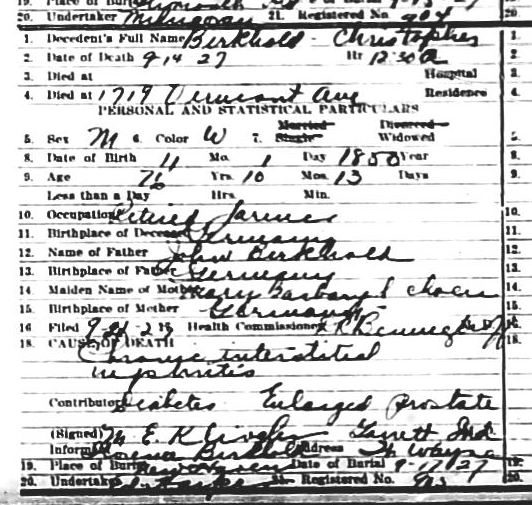 20. Undertaker 21. Registered No 904 20.
1. Decedent's Full Name Berkhold - Christopher 1.
2. Date of Death 9 14 27 Hr 12:30 A 2.
3. Died at Hospital 3.
4. Died at 1719 Ave Residence 4.
PERSONAL AND STATISTICAL PARTICULARS
Married Divorced
5. Sex M 6. Color W 7. Single Widowed 5.
8. Date of Birth 11 Mo. 1 Day 1850 Year 8.
9. Age 76 Yrs. 10 Mos. 13 Days 9.
Less than a Day Hrs. Min.
10. Occupation Retired Farmer 10.
11. Birthplace of Deceased Germany 11.
12. Name of Father John Berkhold 12.
13. Birthplace of Father Germany 13.
14. Maiden Name of Mother Mary 14.
15. Birthplace of Mother Germany 15.
16 Filed 9 Health Commissioner 16.
18. CAUSE OF DEATH 18.
Chronic interstitial
nephritis
Contributory Diabetes Enlarged Prostate
(Signed) E. K. Garrett Ind
Informant Berkhold Address Ft Wayne
19. Place of Burial New Haven Date of Burial 9-17 27 19.
20. Undertaker Registered No. 20.